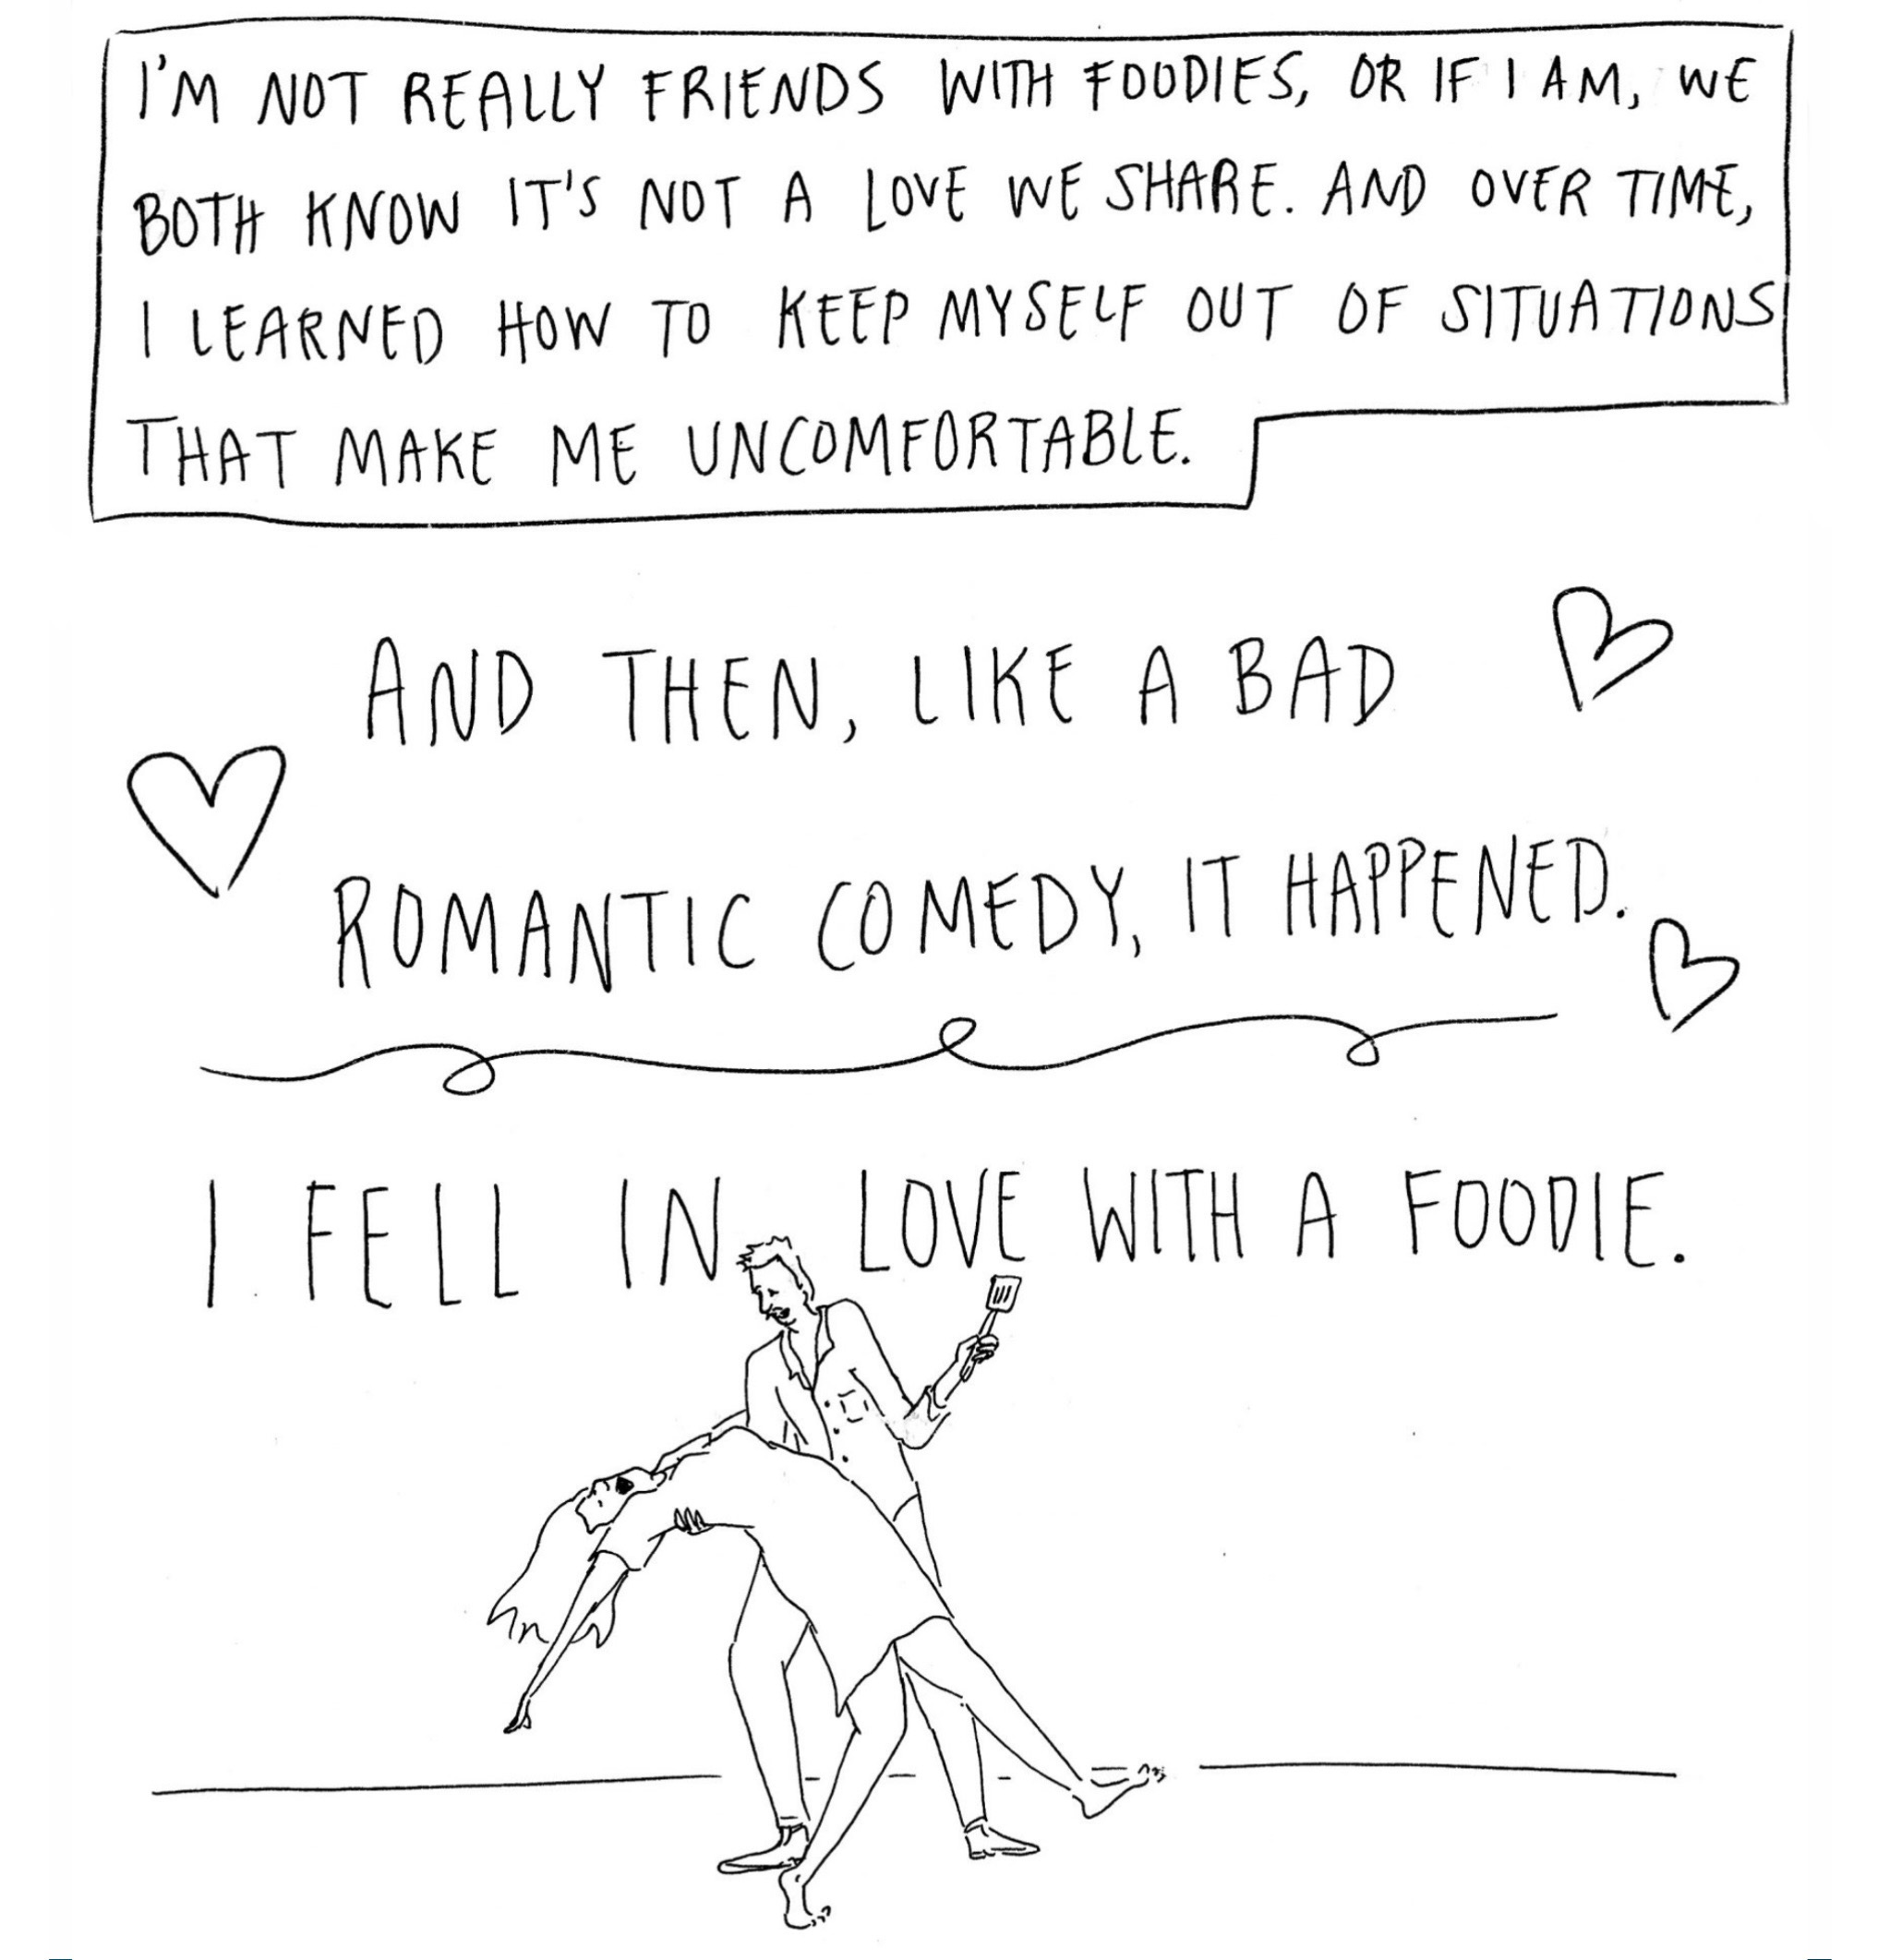 I'M NOT REALLY FRIENDS WITH FOODIES, OR IF I AM, WE
BOTH KNOW IT'S NOT A LOVE WE SHARE. AND OVER TIME,
I LEARNED HOW TO KEEP MYSELF OUT OF SITUATIONS
THAT MAKE ME UNCOMFORTABLE.
AND THEN, LIKE A BAD
ROMANTIC COMEDY, IT HAPPENED.
I FELL IN LOVE WITH A FOODIE.